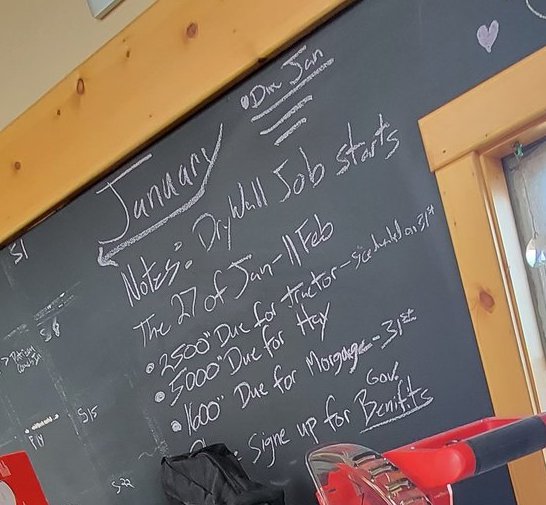 Due Jan
January
Notes: Drywall Job starts
The 27 of Jan-11 Feb
• 2500" Due for tractor - on 31st
• 5000" Due for Hay
• 1600" Due for Morgage - 31st
Gov.
: Signe up for Benifits
S1
S8
S15
Fly
S22